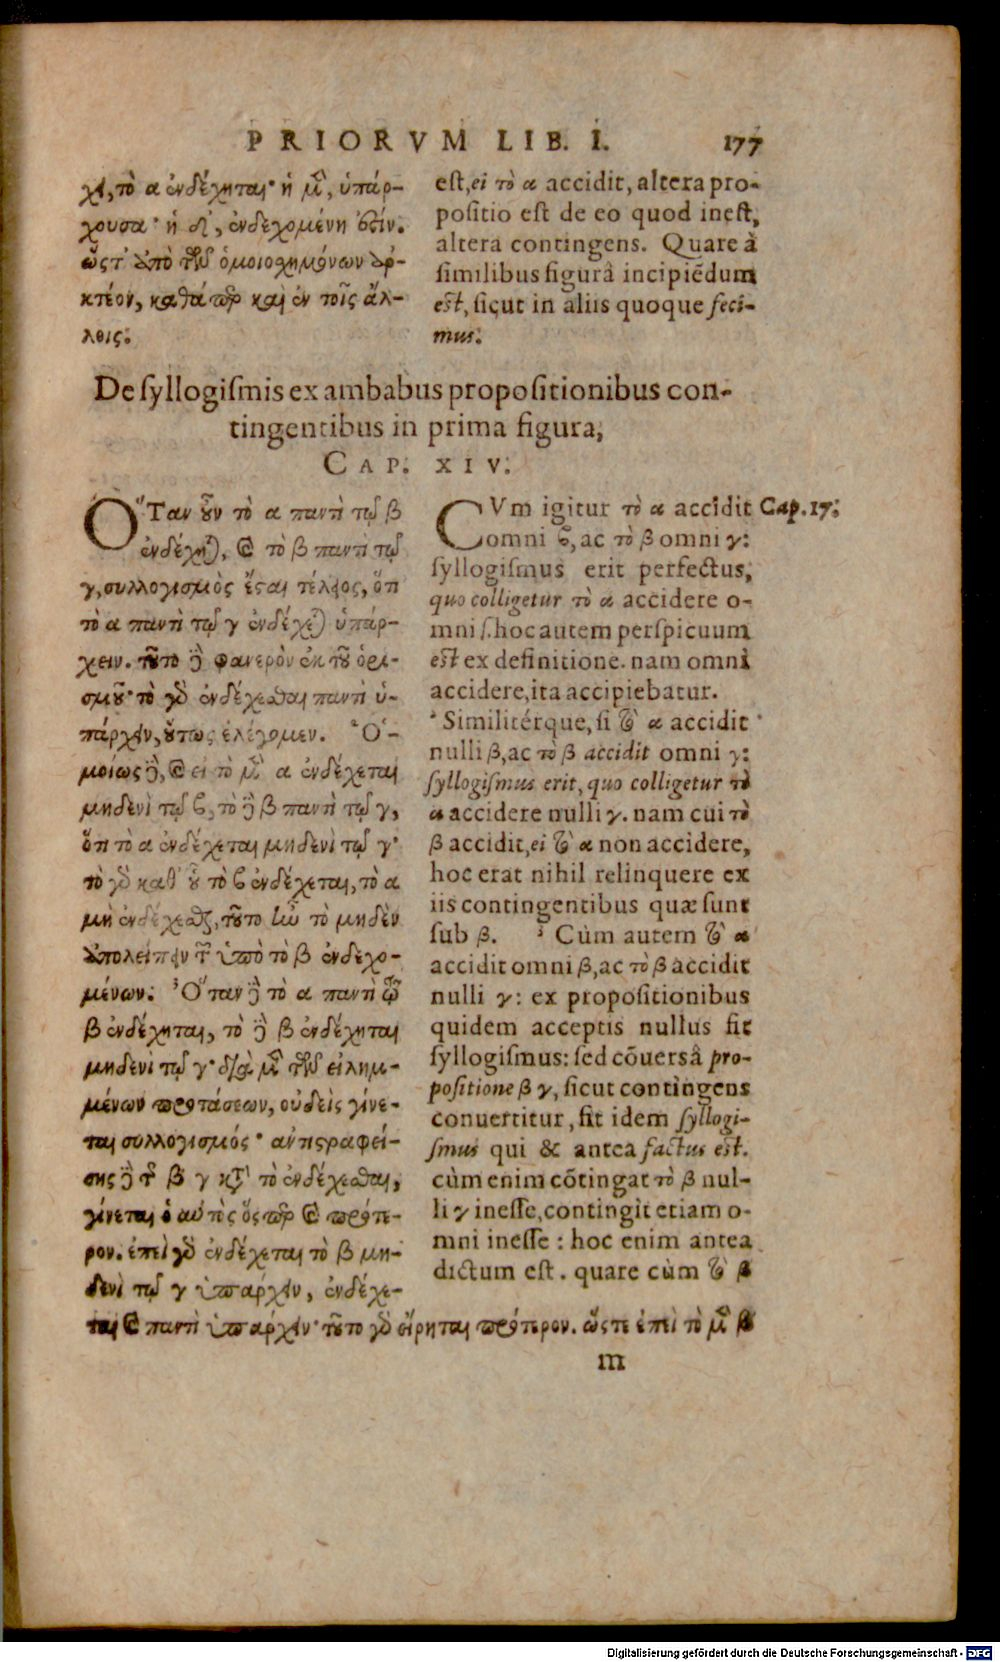 PRIORVM LIB. I. 177
χῇ, τὸ α ἐνδέχηται· ἡ μὲν, ὑπάρ-
χουσα· ἡ δὲ, ἐνδεχομένη ἐστίν.
ὥστ' ἀπὸ τῶν ὁμοιοσχημόνων ἀρ-
κτέον, καθάπερ καὶ ἐν τοῖς ἄλ-
λοις.
est, ei τὸ α accidit, altera pro-
positio est de eo quod inest,
altera contingens. Quare à
similibus figurâ incipiẽdum
est, sicut in aliis quoque feci-
mus.
De syllogismis ex ambabus propositionibus con-
tingentibus in prima figura,
CAP. XIV.
ὍΤαν οὖν τὸ α παντὶ τῷ β
ἐνδέχηται, καὶ τὸ β παντὶ τῷ
γ, συλλογισμὸς ἔσται τέλειος, ὅτι
τὸ α παντὶ τῷ γ ἐνδέχεται ὑπάρ-
χειν. τοῦτο δὲ φανερὸν ἐκ τοῦ ὁρι-
σμοῦ· τὸ γὰρ ἐνδέχεσθαι παντὶ ὑ-
πάρχειν, οὕτως ἐλέγομεν. ² Ὁ-
μοίως δὲ, καὶ εἰ τὸ μὲν α ἐνδέχεται
μηδενὶ τῷ ϐ, τὸ δὲ β παντὶ τῷ γ,
ὅτι τὸ α ἐνδέχεται μηδενὶ τῷ γ·
τὸ γὰρ καθ' οὗ τὸ ϐ ἐνδέχεται, τὸ α
μὴ ἐνδέχεσθαι, τοῦτο ἦν τὸ μηδὲν
ἀπολείπειν τῶν ὑπὸ τὸ β ἐνδεχο-
μένων. ³ Ὅταν δὲ τὸ α παντὶ τῷ
β ἐνδέχηται, τὸ δὲ β ἐνδέχηται
μηδενὶ τῷ γ· διὰ μὲν τῶν εἰλημ-
μένων προτάσεων, οὐδεὶς γίνε-
ται συλλογισμός· ἀντιστραφεί-
σης δὲ τῆς β γ κατὰ τὸ ἐνδέχεσθαι,
γίνεται ὁ αὐτὸς ὅσπερ καὶ πρότε-
ρον. ἐπεὶ γὰρ ἐνδέχεται τὸ β μη-
δενὶ τῷ γ ὑπάρχειν, ἐνδέχε-
ται καὶ παντὶ ὑπάρχειν· τοῦτο γὰρ εἴρηται πρότερον. ὥστε ἐπεὶ τὸ μὲν β
CVm igitur τὸ α accidit
omni ϐ, ac τὸ β omni γ:
syllogismus erit perfectus,
quo colligetur τὸ α accidere o-
mni γ. hoc autem perspicuum
est ex definitione. nam omni
accidere, ita accipiebatur.
² Similitérque, si τὸ α accidit
nulli β, ac τὸ β accidit omni γ:
syllogismus erit, quo colligetur τὸ
α accidere nulli γ. nam cui τὸ
β accidit, ei τὸ α non accidere,
hoc erat nihil relinquere ex
iis contingentibus quæ sunt
sub β. ³ Cùm autem τὸ α
accidit omni β, ac τὸ β accidit
nulli γ: ex propositionibus
quidem acceptis nullus fit
syllogismus: sed cõuersâ pro-
positione β γ, sicut contingens
conuertitur, fit idem syllogi-
smus qui & antea factus est.
cùm enim cõtingat τὸ β nul-
li γ inesse, contingit etiam o-
mni inesse : hoc enim antea
dictum est. quare cùm τὸ β
Cap. 17.
m
Digitalisierung gefördert durch die Deutsche Forschungsgemeinschaft - DFG